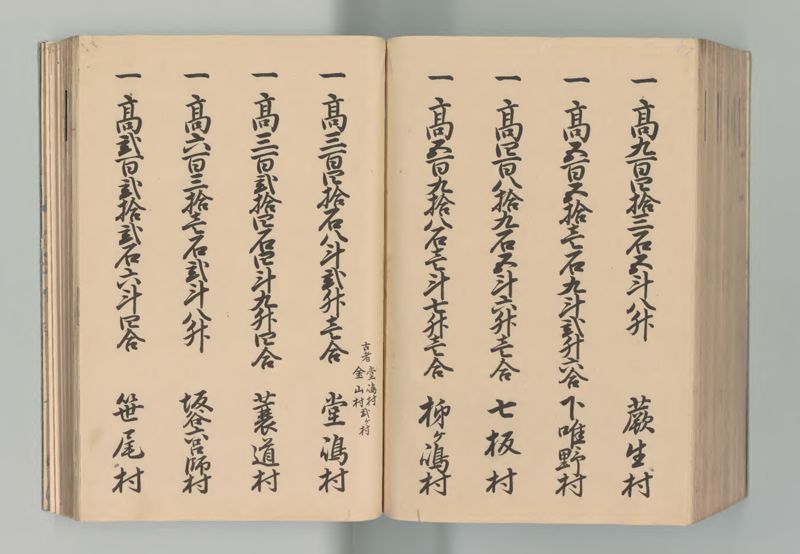 一 高九百四拾三石五斗八升 蕨生村
一 高五百五拾壱石九斗弐升六合 下唯野村
一 高四百八拾九石五斗六升壱合 七板村
一 高五百九拾八石壱斗七升壱合 柿ケ嶋村
一 高三百四拾石八斗弐升壱合 堂嶋村
古者 堂嶋村 金山村 弐ケ村
一 高三百弐拾四石四斗九升四合 蓑道村
一 高六百三拾壱石弐斗八升 坂谷六呂師村
一 高弐百弐拾弐石六斗四合 笹尾村